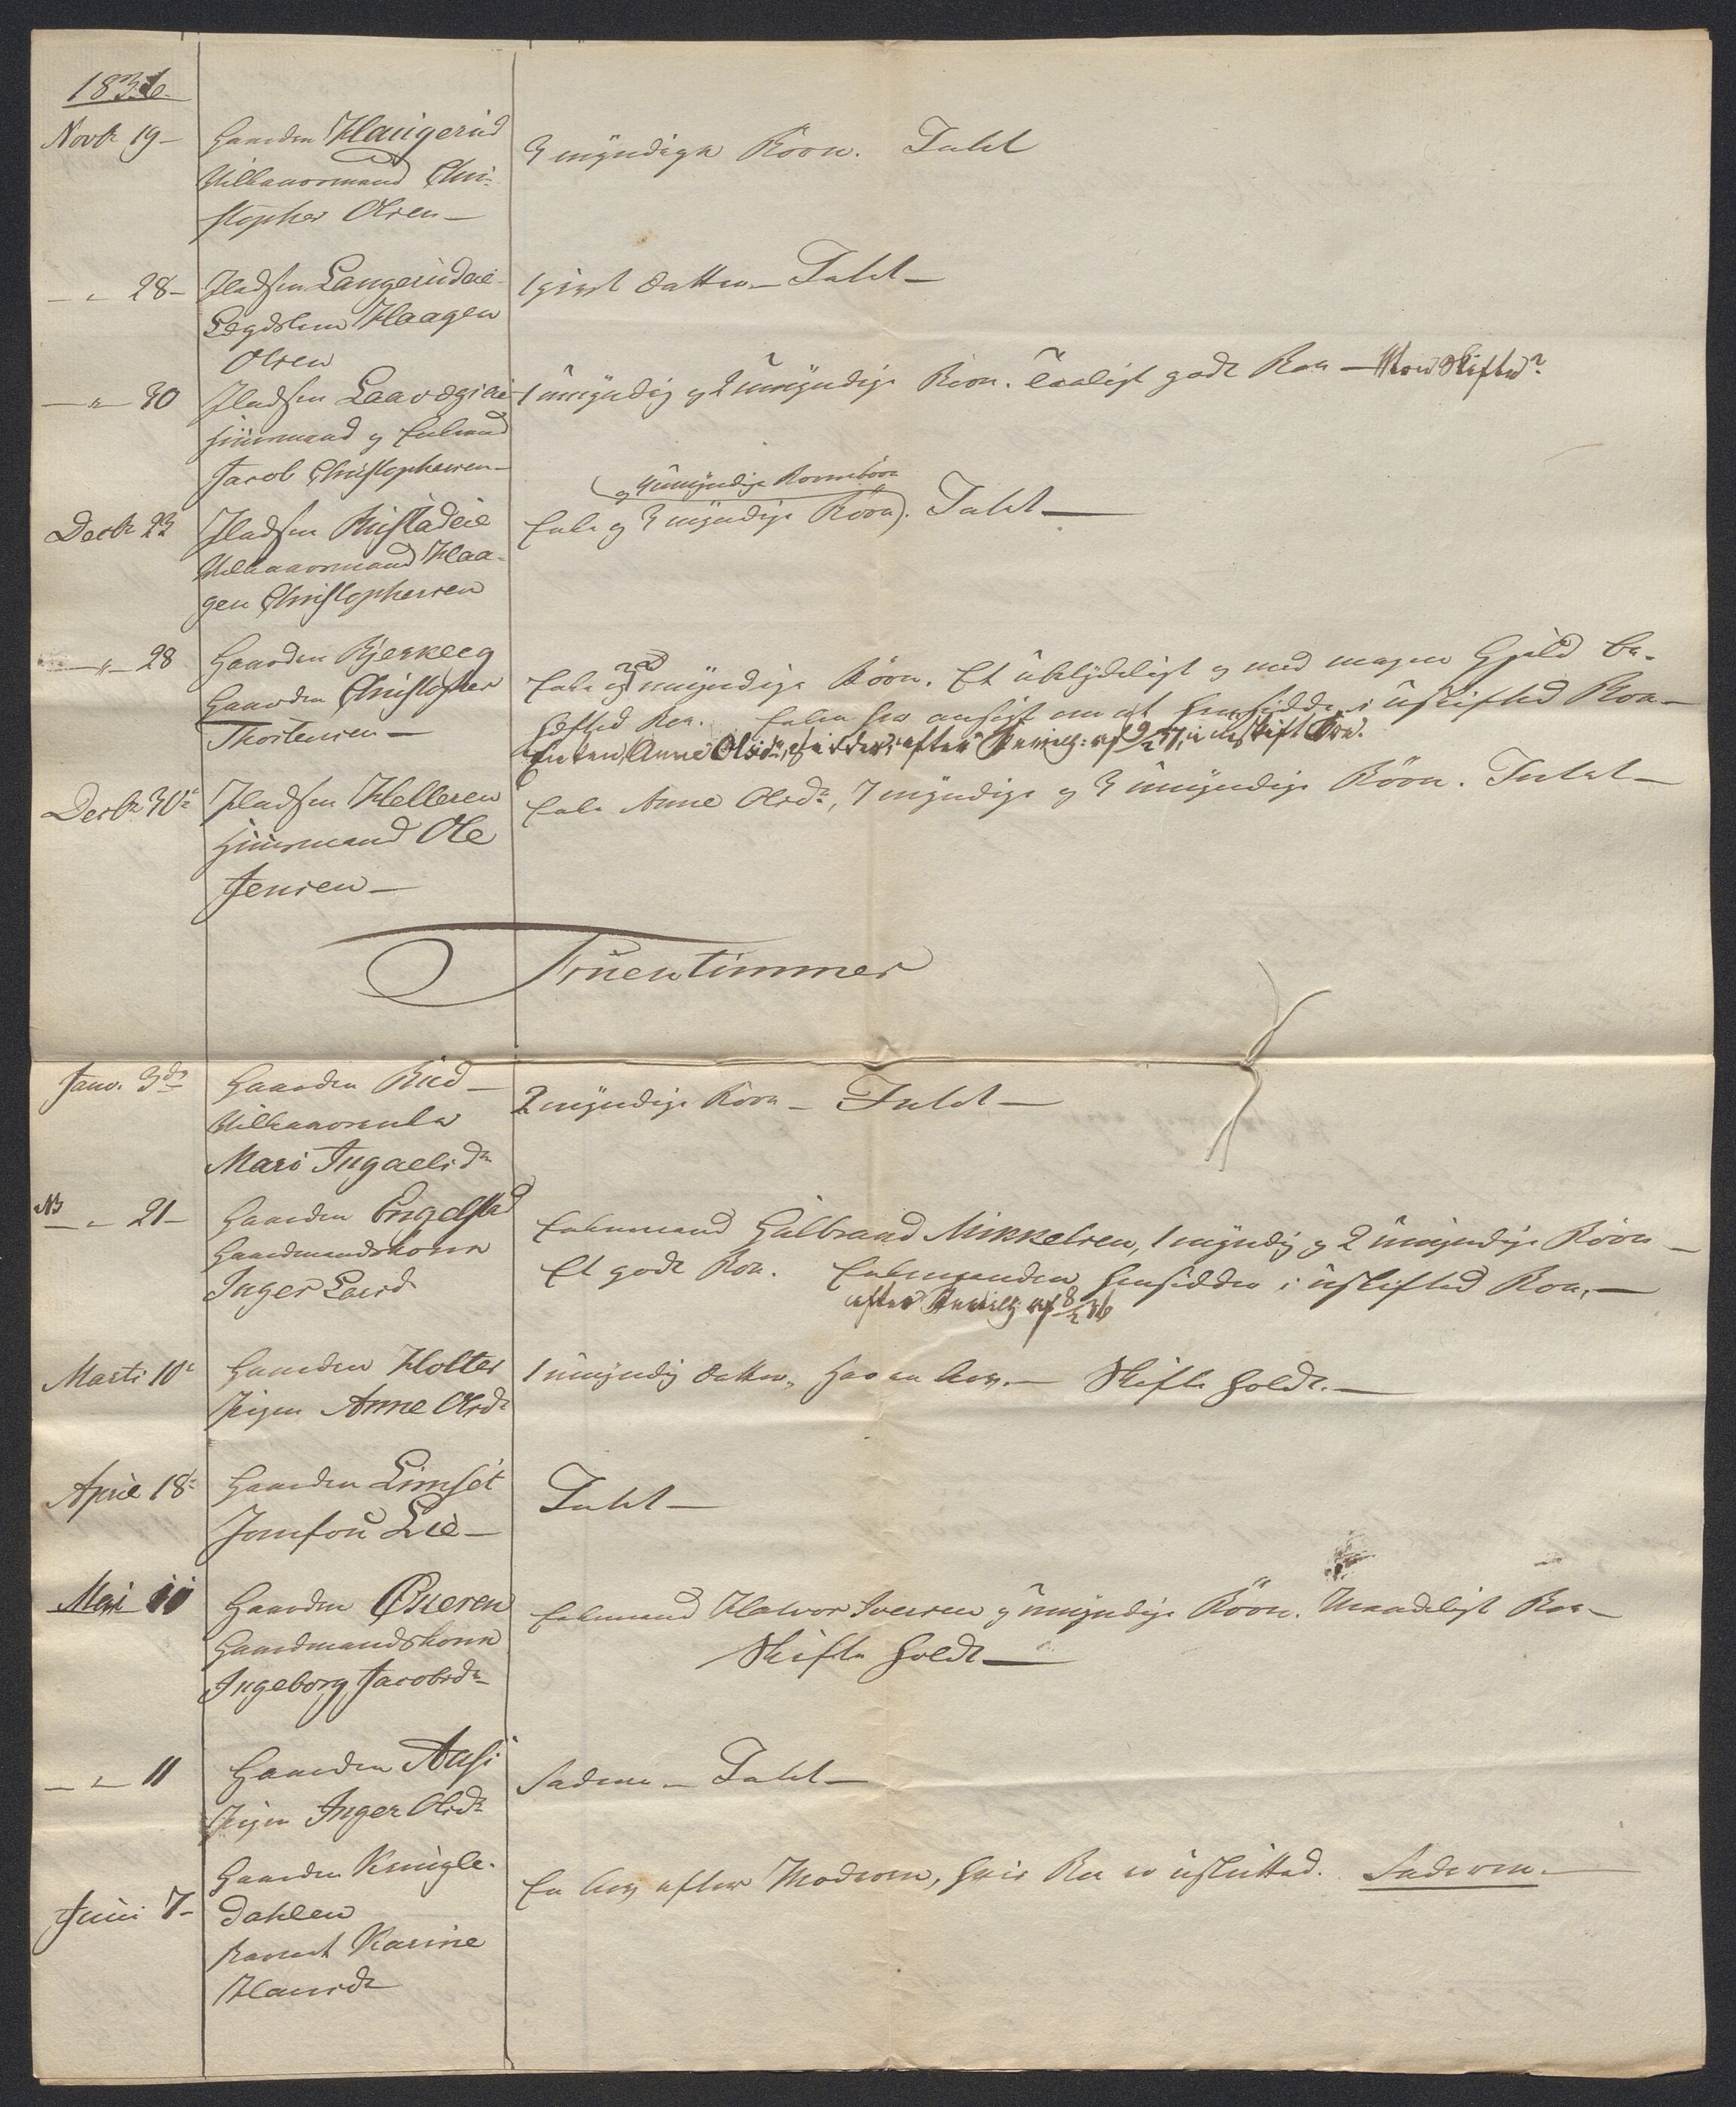 1836.
Novbr 19 –
Gaarden Haugerud
Vilkaarsmand Chri-
stopher Olsen –
3 myndige Börn. Fattet
– " – 28 –
Pladsen Langerudeie
Lægdslem Haagen
Olsen
1 givt Datter – Fattet –
– " – 30
Pladsen
Huusmand og Enkemand
Jacob Christophersen –
1 myndig og 2 umyndige Börn. Taaligt godt Boe –
Decbr 23
Pladsen Rustadeie
Vilkaarsmand Haa-
gen Christophersen
og 4 umyndige Börnebörn
Enke og 3 myndige Börn. Fattet –
– " – 28
Gaarden Bjerkeeg
Gaardm. Christopher
Thorstensen –
Enke og myndige Börn. Et ubetydeligt og med megen Gjeld be-
hæftet Boe. Enken har ansøgt om at hensidde i uskiftet Boe –
Enken, Anne Olsdr, efter Bevillg: af i uskift Boe.
Decbr 30te
Pladsen Helleren
Huusmand Ole
Jensen –
Enke Anne Olsdr, 7 myndige og 3 umyndige Börn. Fattet –
Fruentimmer
Janv. 3de
Gaarden Rud –
Vilkaarsenke
Mari Ingaelsdr
2 myndige Börn – Fattet –
NB
– " – 21 –
Gaarden Engelstad
Gaardmandskone
Inger Larsd.
Enkemand Gulbrand Mikkelsen, 1 myndig og 2 umyndige Börn –
Et godt Boe. Enkemanden hensidder i uskiftet Boe. –
efter Bevillg: af 8/2 36
Marti 10de
Gaarden Holter
Pigen Anne Olsdr
1 umyndig Datter, Har en Arv. – Skifte holdt. –
April 18de
Gaarden Limset
Jomfru Lie –
Fattet –
Mai 11
Gaarden Qveren
Gaardmandskone
Ingeborg Jacobsdr
Enkemand Halvor Iversen og umyndige Börn. Maadeligt Boe –
Skifte holdt –
– " – 11
Gaarden Aasi
Pigen Inger Olsdr
Faderen – Fattet –
Juni 7 –
Gaarden Kringle-
dahlen
Barnet Karine
Hansdr
En Arv efter Moderen, hvis Boe er usluttet. Faderen. –